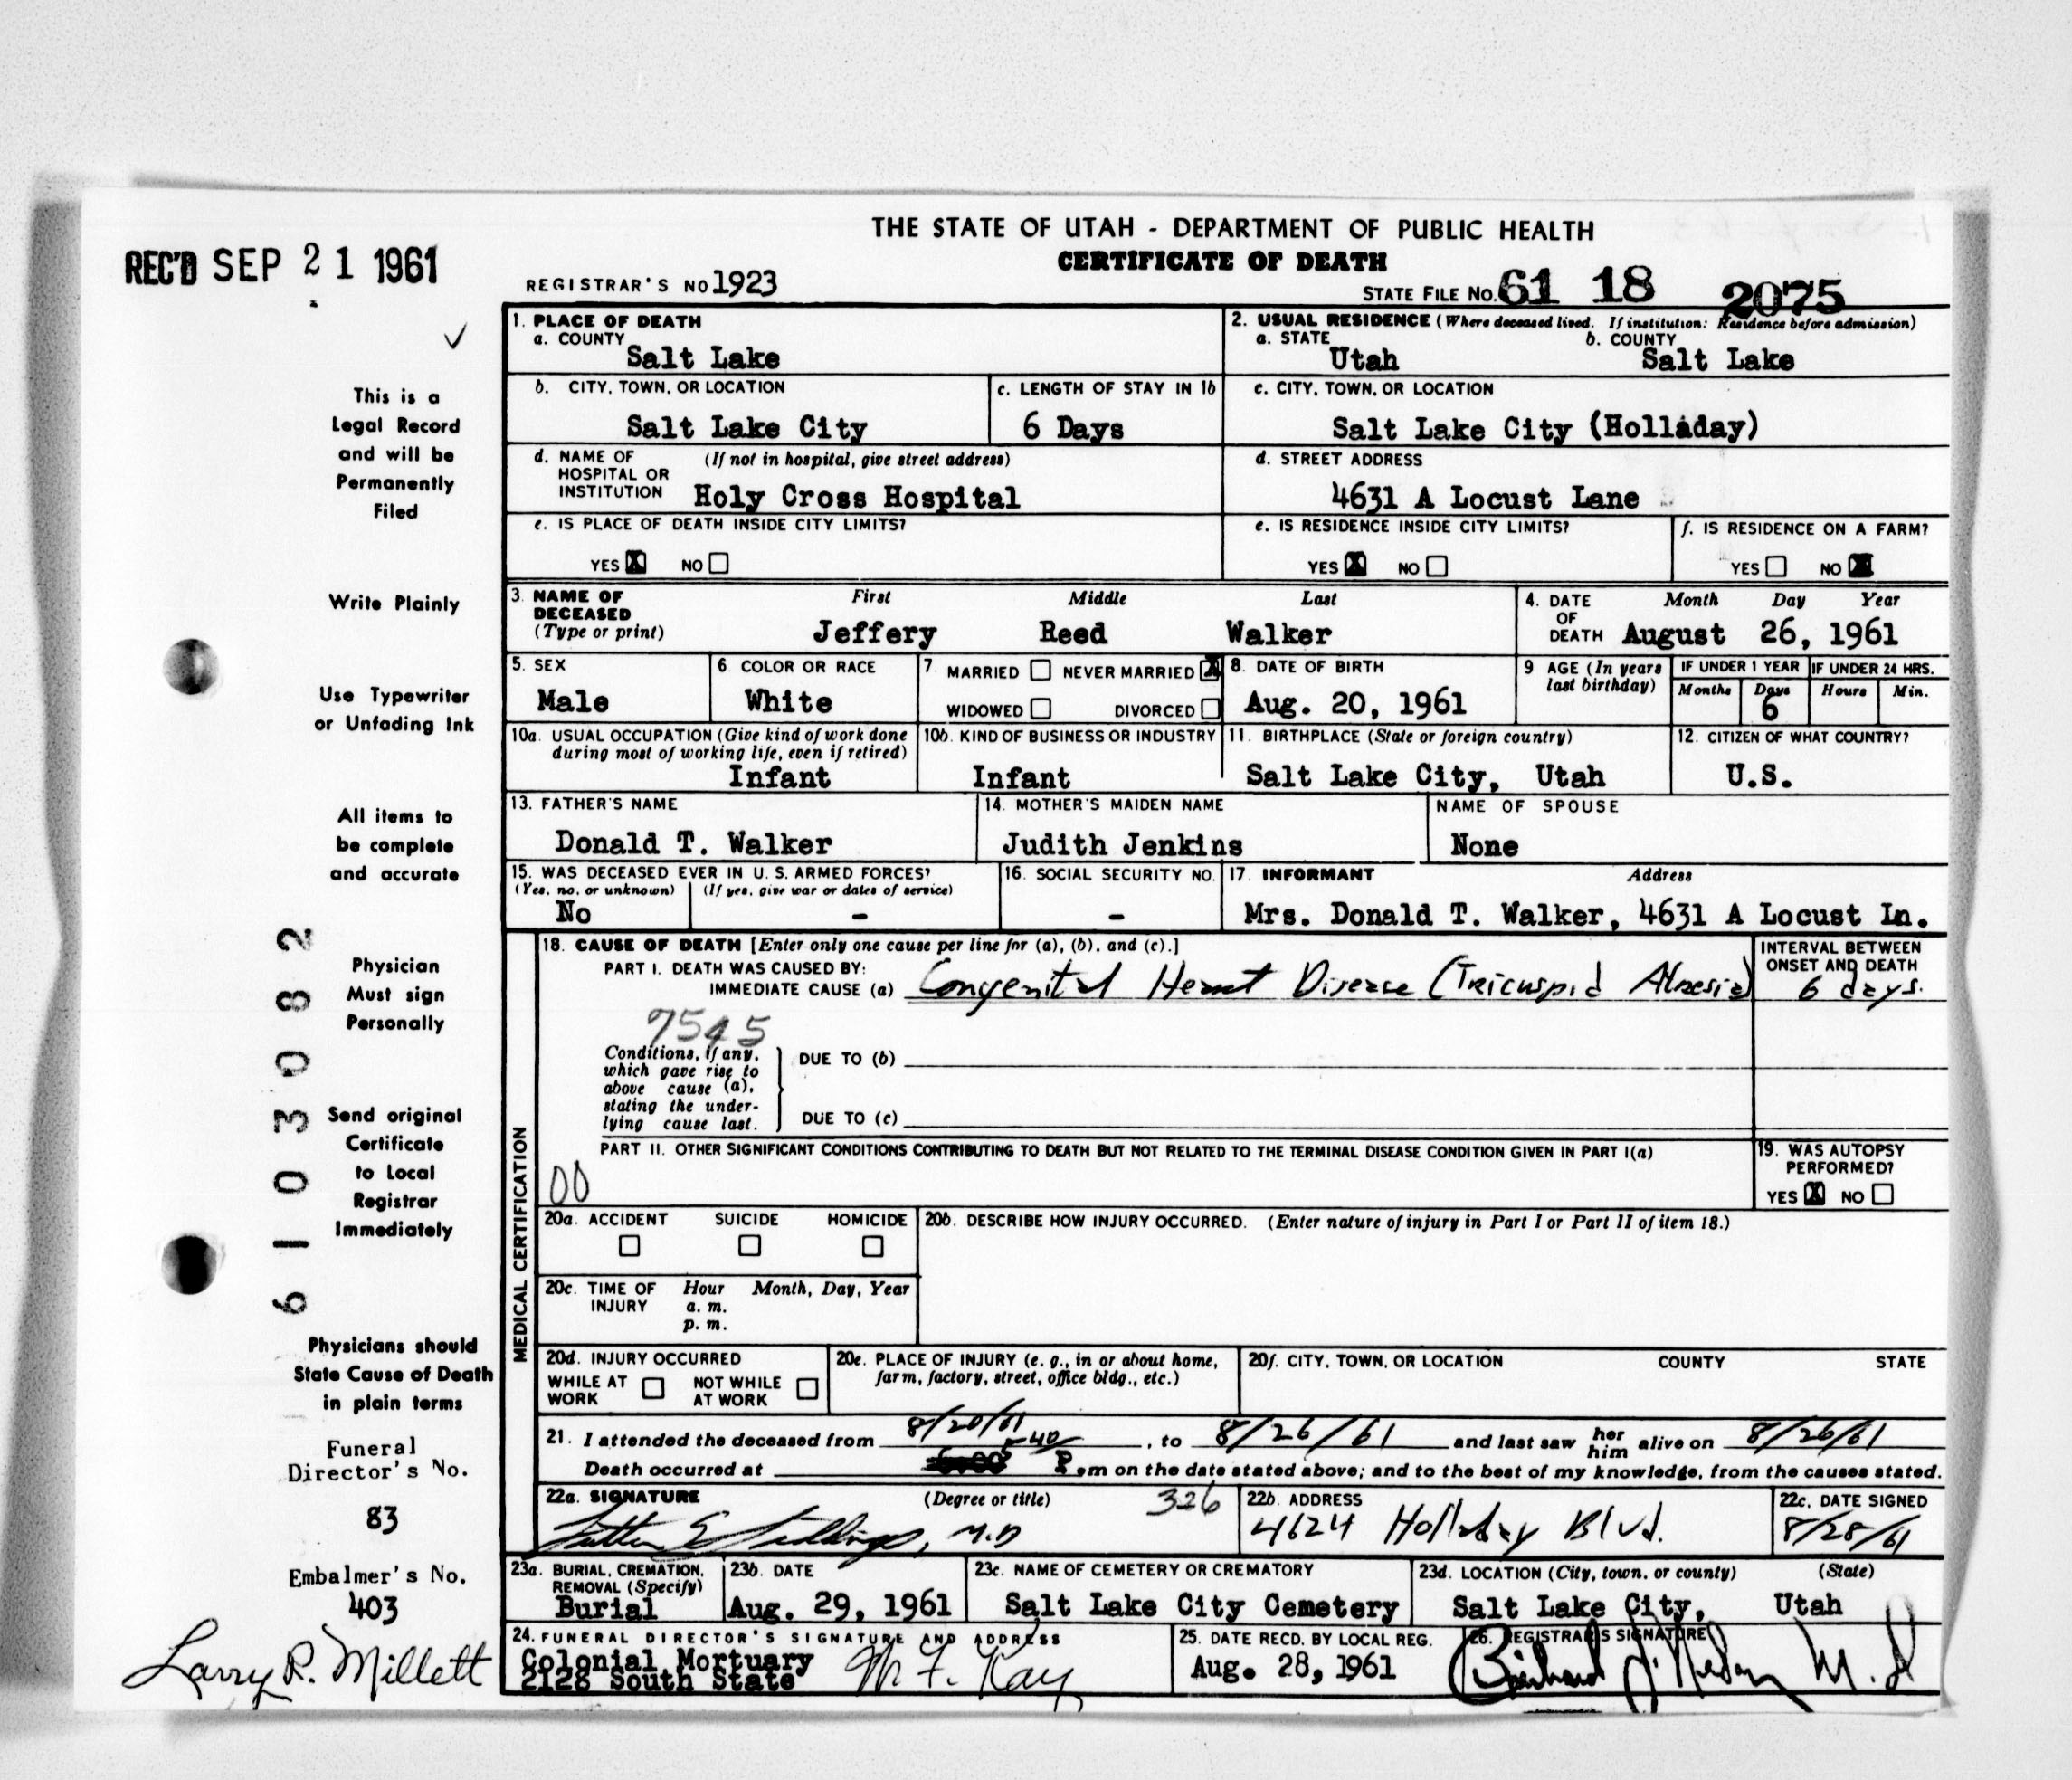 THE STATE OF UTAH - DEPARTMENT OF PUBLIC HEALTH
CERTIFICATE OF DEATH
REC'D SEP 21 1961
REGISTRAR'S NO 1923
STATE FILE No. 61 18 2075
✓
This is a
Legal Record
and will be
Permanently
Filed
Write Plainly
Use Typewriter
or Unfading Ink
All items to
be complete
and accurate
Physician
Must sign
Personally
Send original
Certificate
to Local
Registrar
Immediately
Physicians should
State Cause of Death
in plain terms
Funeral
Director's No.
83
Embalmer's No.
403
Larry R. Millett
6103082
1. PLACE OF DEATH
a. COUNTY
Salt Lake
2. USUAL RESIDENCE (Where deceased lived. If institution: Residence before admission)
a. STATE b. COUNTY
Utah Salt Lake
b. CITY, TOWN, OR LOCATION
Salt Lake City
c. LENGTH OF STAY IN 1b
6 Days
c. CITY, TOWN, OR LOCATION
Salt Lake City (Holladay)
d. NAME OF (If not in hospital, give street address)
HOSPITAL OR
INSTITUTION Holy Cross Hospital
d. STREET ADDRESS
4631 A Locust Lane
e. IS PLACE OF DEATH INSIDE CITY LIMITS?
YES X NO
e. IS RESIDENCE INSIDE CITY LIMITS?
YES X NO
f. IS RESIDENCE ON A FARM?
YES NO X
3. NAME OF First Middle Last
DECEASED
(Type or print) Jeffery Reed Walker
4. DATE Month Day Year
OF
DEATH August 26, 1961
5. SEX
Male
6. COLOR OR RACE
White
7. MARRIED NEVER MARRIED X
WIDOWED DIVORCED
8. DATE OF BIRTH
Aug. 20, 1961
9 AGE (In years
last birthday)
IF UNDER 1 YEAR IF UNDER 24 HRS.
Months Days Hours Min.
6
10a. USUAL OCCUPATION (Give kind of work done
during most of working life, even if retired)
Infant
10b. KIND OF BUSINESS OR INDUSTRY
Infant
11. BIRTHPLACE (State or foreign country)
Salt Lake City, Utah
12. CITIZEN OF WHAT COUNTRY?
U.S.
13. FATHER'S NAME
Donald T. Walker
14. MOTHER'S MAIDEN NAME
Judith Jenkins
NAME OF SPOUSE
None
15. WAS DECEASED EVER IN U. S. ARMED FORCES?
(Yes, no, or unknown) (If yes, give war or dates of service)
No -
16. SOCIAL SECURITY NO.
-
17. INFORMANT Address
Mrs. Donald T. Walker, 4631 A Locust Ln.
MEDICAL CERTIFICATION
18. CAUSE OF DEATH [Enter only one cause per line for (a), (b), and (c).]
PART I. DEATH WAS CAUSED BY:
IMMEDIATE CAUSE (a) Congenital Heart Disease (Tricuspid Atresia)
INTERVAL BETWEEN
ONSET AND DEATH
6 days.
7545
Conditions, if any,
which gave rise to
above cause (a),
stating the under-
lying cause last.
DUE TO (b)
DUE TO (c)
PART II. OTHER SIGNIFICANT CONDITIONS CONTRIBUTING TO DEATH BUT NOT RELATED TO THE TERMINAL DISEASE CONDITION GIVEN IN PART I(a)
00
19. WAS AUTOPSY
PERFORMED?
YES X NO
20a. ACCIDENT SUICIDE HOMICIDE
20b. DESCRIBE HOW INJURY OCCURRED. (Enter nature of injury in Part I or Part II of item 18.)
20c. TIME OF Hour Month, Day, Year
INJURY a. m.
p. m.
20d. INJURY OCCURRED
WHILE AT NOT WHILE
WORK AT WORK
20e. PLACE OF INJURY (e. g., in or about home,
farm, factory, street, office bldg., etc.)
20f. CITY, TOWN, OR LOCATION COUNTY STATE
21. I attended the deceased from 8/20/61, to 8/26/61 and last saw her him alive on 8/26/61
Death occurred at 5:40 P.m on the date stated above; and to the best of my knowledge, from the causes stated.
22a. SIGNATURE (Degree or title) 326
M.D
22b. ADDRESS
4624 Holladay Blvd.
22c. DATE SIGNED
8/28/61
23a. BURIAL, CREMATION,
REMOVAL (Specify)
Burial
23b. DATE
Aug. 29, 1961
23c. NAME OF CEMETERY OR CREMATORY
Salt Lake City Cemetery
23d. LOCATION (City, town, or county) (State)
Salt Lake City, Utah
24. FUNERAL DIRECTOR'S SIGNATURE AND ADDRESS
Colonial Mortuary
2128 South State
M F. Kay
25. DATE RECD. BY LOCAL REG.
Aug. 28, 1961
26. REGISTRAR'S SIGNATURE
M.D